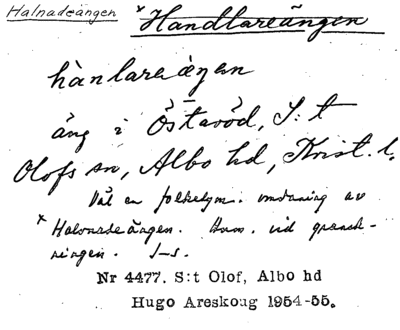 Halnadeängen
*Handlareängen
hànlareäŋen
äng i Östaröd, S:t
Olofs sn, Albo hd, Krist. l.
Väl en folketym. omdaning av
* Halvnadeängen. Anm. vid gransk-
ningen. J-s.
Nr 4477. S:t Olof, Albo hd
Hugo Areskoug 1954-55.